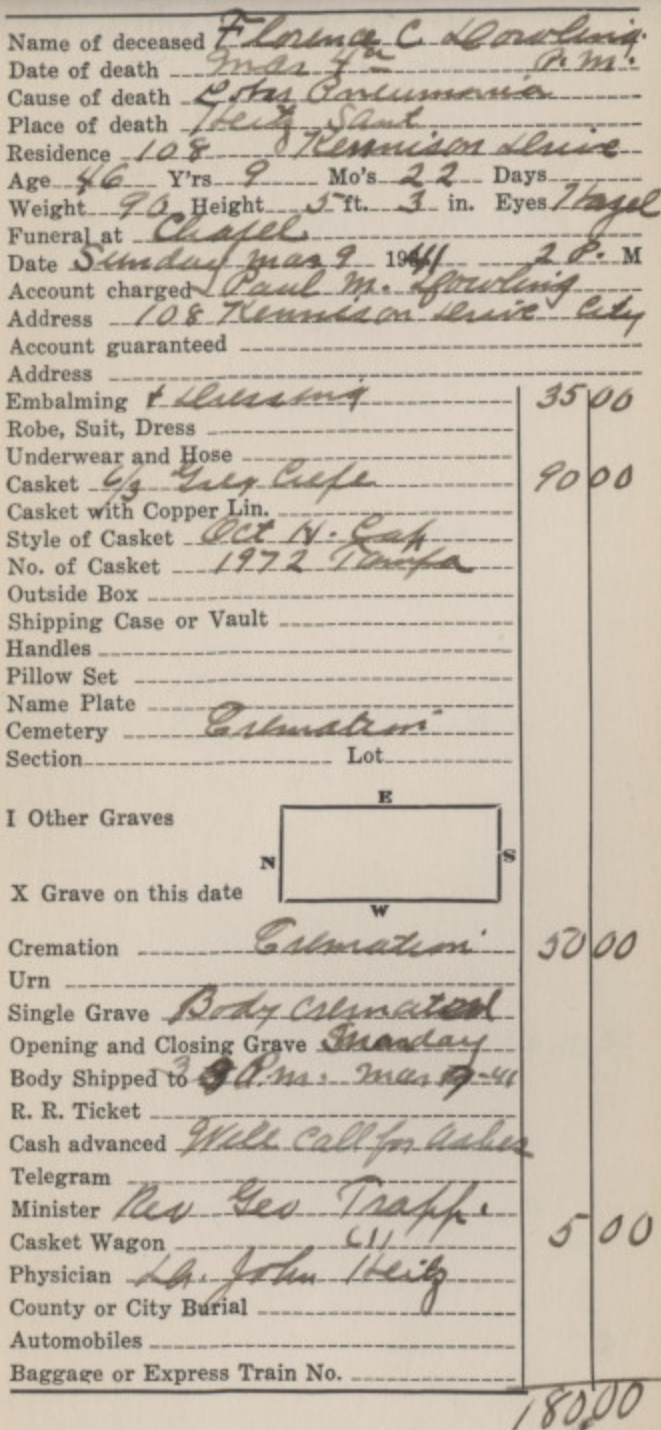 Name of deceased Florence C Dowling
Date of death Mar 4th P.M.
Cause of death Lobar Pneumonia
Place of death Heitz Sant
Residence 108 Kennison Drive
Age 46 Y'rs 9 Mo's 22 Days
Weight 90 Height 5 ft. 3 in. Eyes Hazel
Funeral at Chapel
Date Sunday Mar 9 1941 2 P. M
Account charged Paul M. Dowling
Address 108 Kennison Drive City
Account guaranteed
Address
Embalming & Dressing 35 00
Robe, Suit, Dress
Underwear and Hose
Casket 6/3 Grey Crepe 90 00
Casket with Copper Lin.
Style of Casket Oct H. Cap
No. of Casket 1972 Tampa
Outside Box
Shipping Case or Vault
Handles
Pillow Set
Name Plate
Cemetery Cremation
Section Lot
E
I Other Graves
N S
X Grave on this date
W
Cremation Cremation 50 00
Urn
Single Grave Body cremated
Opening and Closing Grave
Body Shipped to 3 P.m. Mar -41
R. R. Ticket
Cash advanced Will call for ashes
Telegram
Minister Rev Geo Trapp. 5 00
Casket Wagon (1)
Physician Dr. John Heitz
County or City Burial
Automobiles
Baggage or Express Train No.
180.00